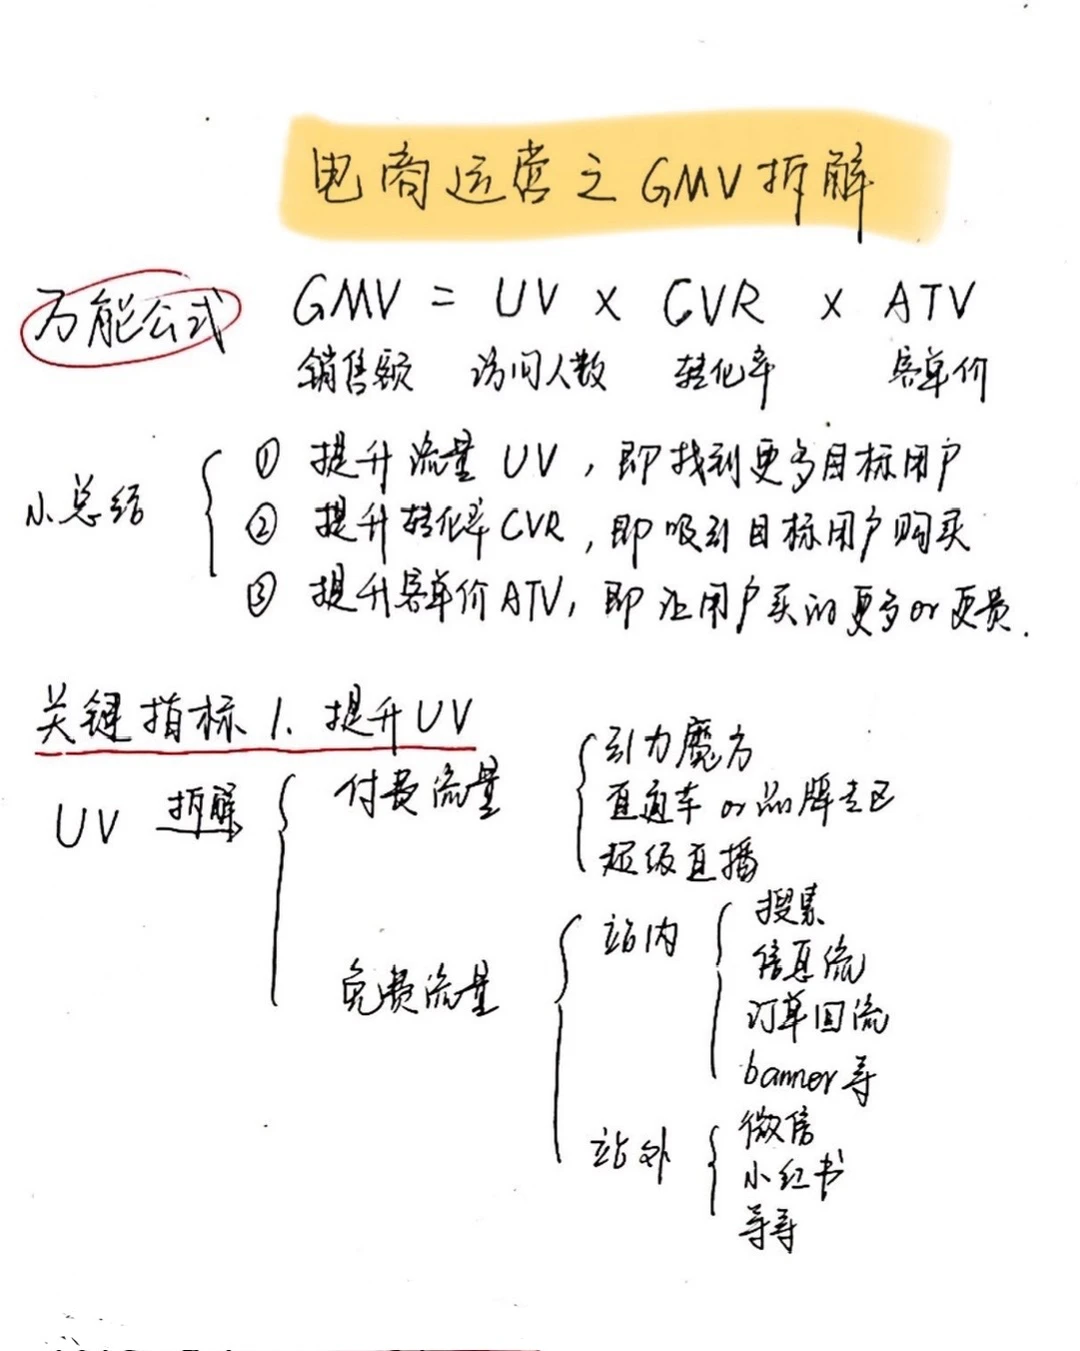 电商运营之GMV拆解
万能公式 GMV = UV x CVR x ATV
销售额 访问人数 转化率 客单价
小总结
① 提升流量UV，即找到更多目标用户
② 提升转化率CVR，即吸引目标用户购买
③ 提升客单价ATV，即让用户买的更多or更贵.
关键指标1. 提升UV
UV 拆解
付费流量
引力魔方
直通车or品牌专区
超级直播
免费流量
站内
搜索
信息流
订单回流
banner等
站外
微信
小红书
等等